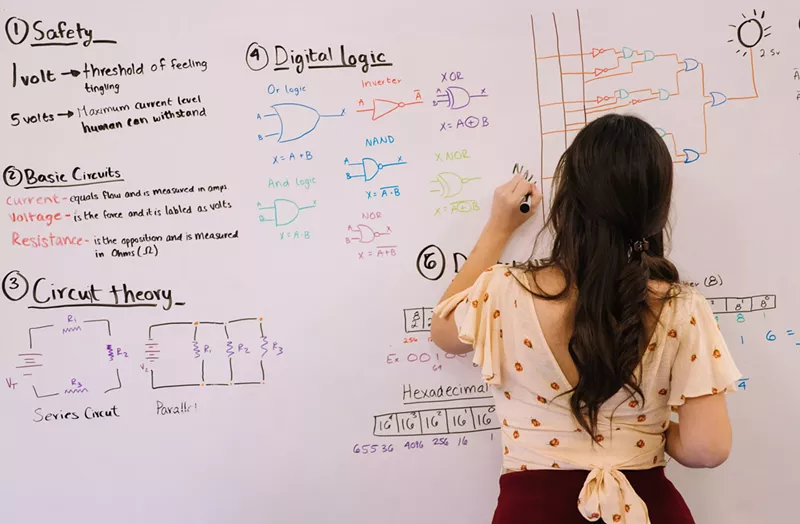 ① Safety
1 volt → threshold of feeling
tingling
5 volts → Maximum current level
human can withstand
② Basic Circuits
Current - equals flow and is measured in amps
Voltage - is the force and it is labled as volts
Resistance - is the opposition and is measured
in Ohms (Ω)
③ Circut theory
R1
R2
R3
VT
Series Circut
R1
R2
R3
Parallel
④ Digital logic
Or logic
A
B
X
X = A + B
Inverter
A
A̅
XOR
A
B
X
X = A ⊕ B
NAND
A
B
X
X = A̅ ̅·̅ ̅B̅
X NOR
X = A̅ ̅⊕̅ ̅B̅
And logic
A
B
X
X = A · B
NOR
X = A̅ ̅+̅ ̅B̅
2.5v
⑥
(8)
8¹ 8⁰
8 1
256
Ex. 001
64
1 6 =
Hexadecimal
16⁴ 16³ 16² 16¹ 16⁰
65536 4096 256 16 1